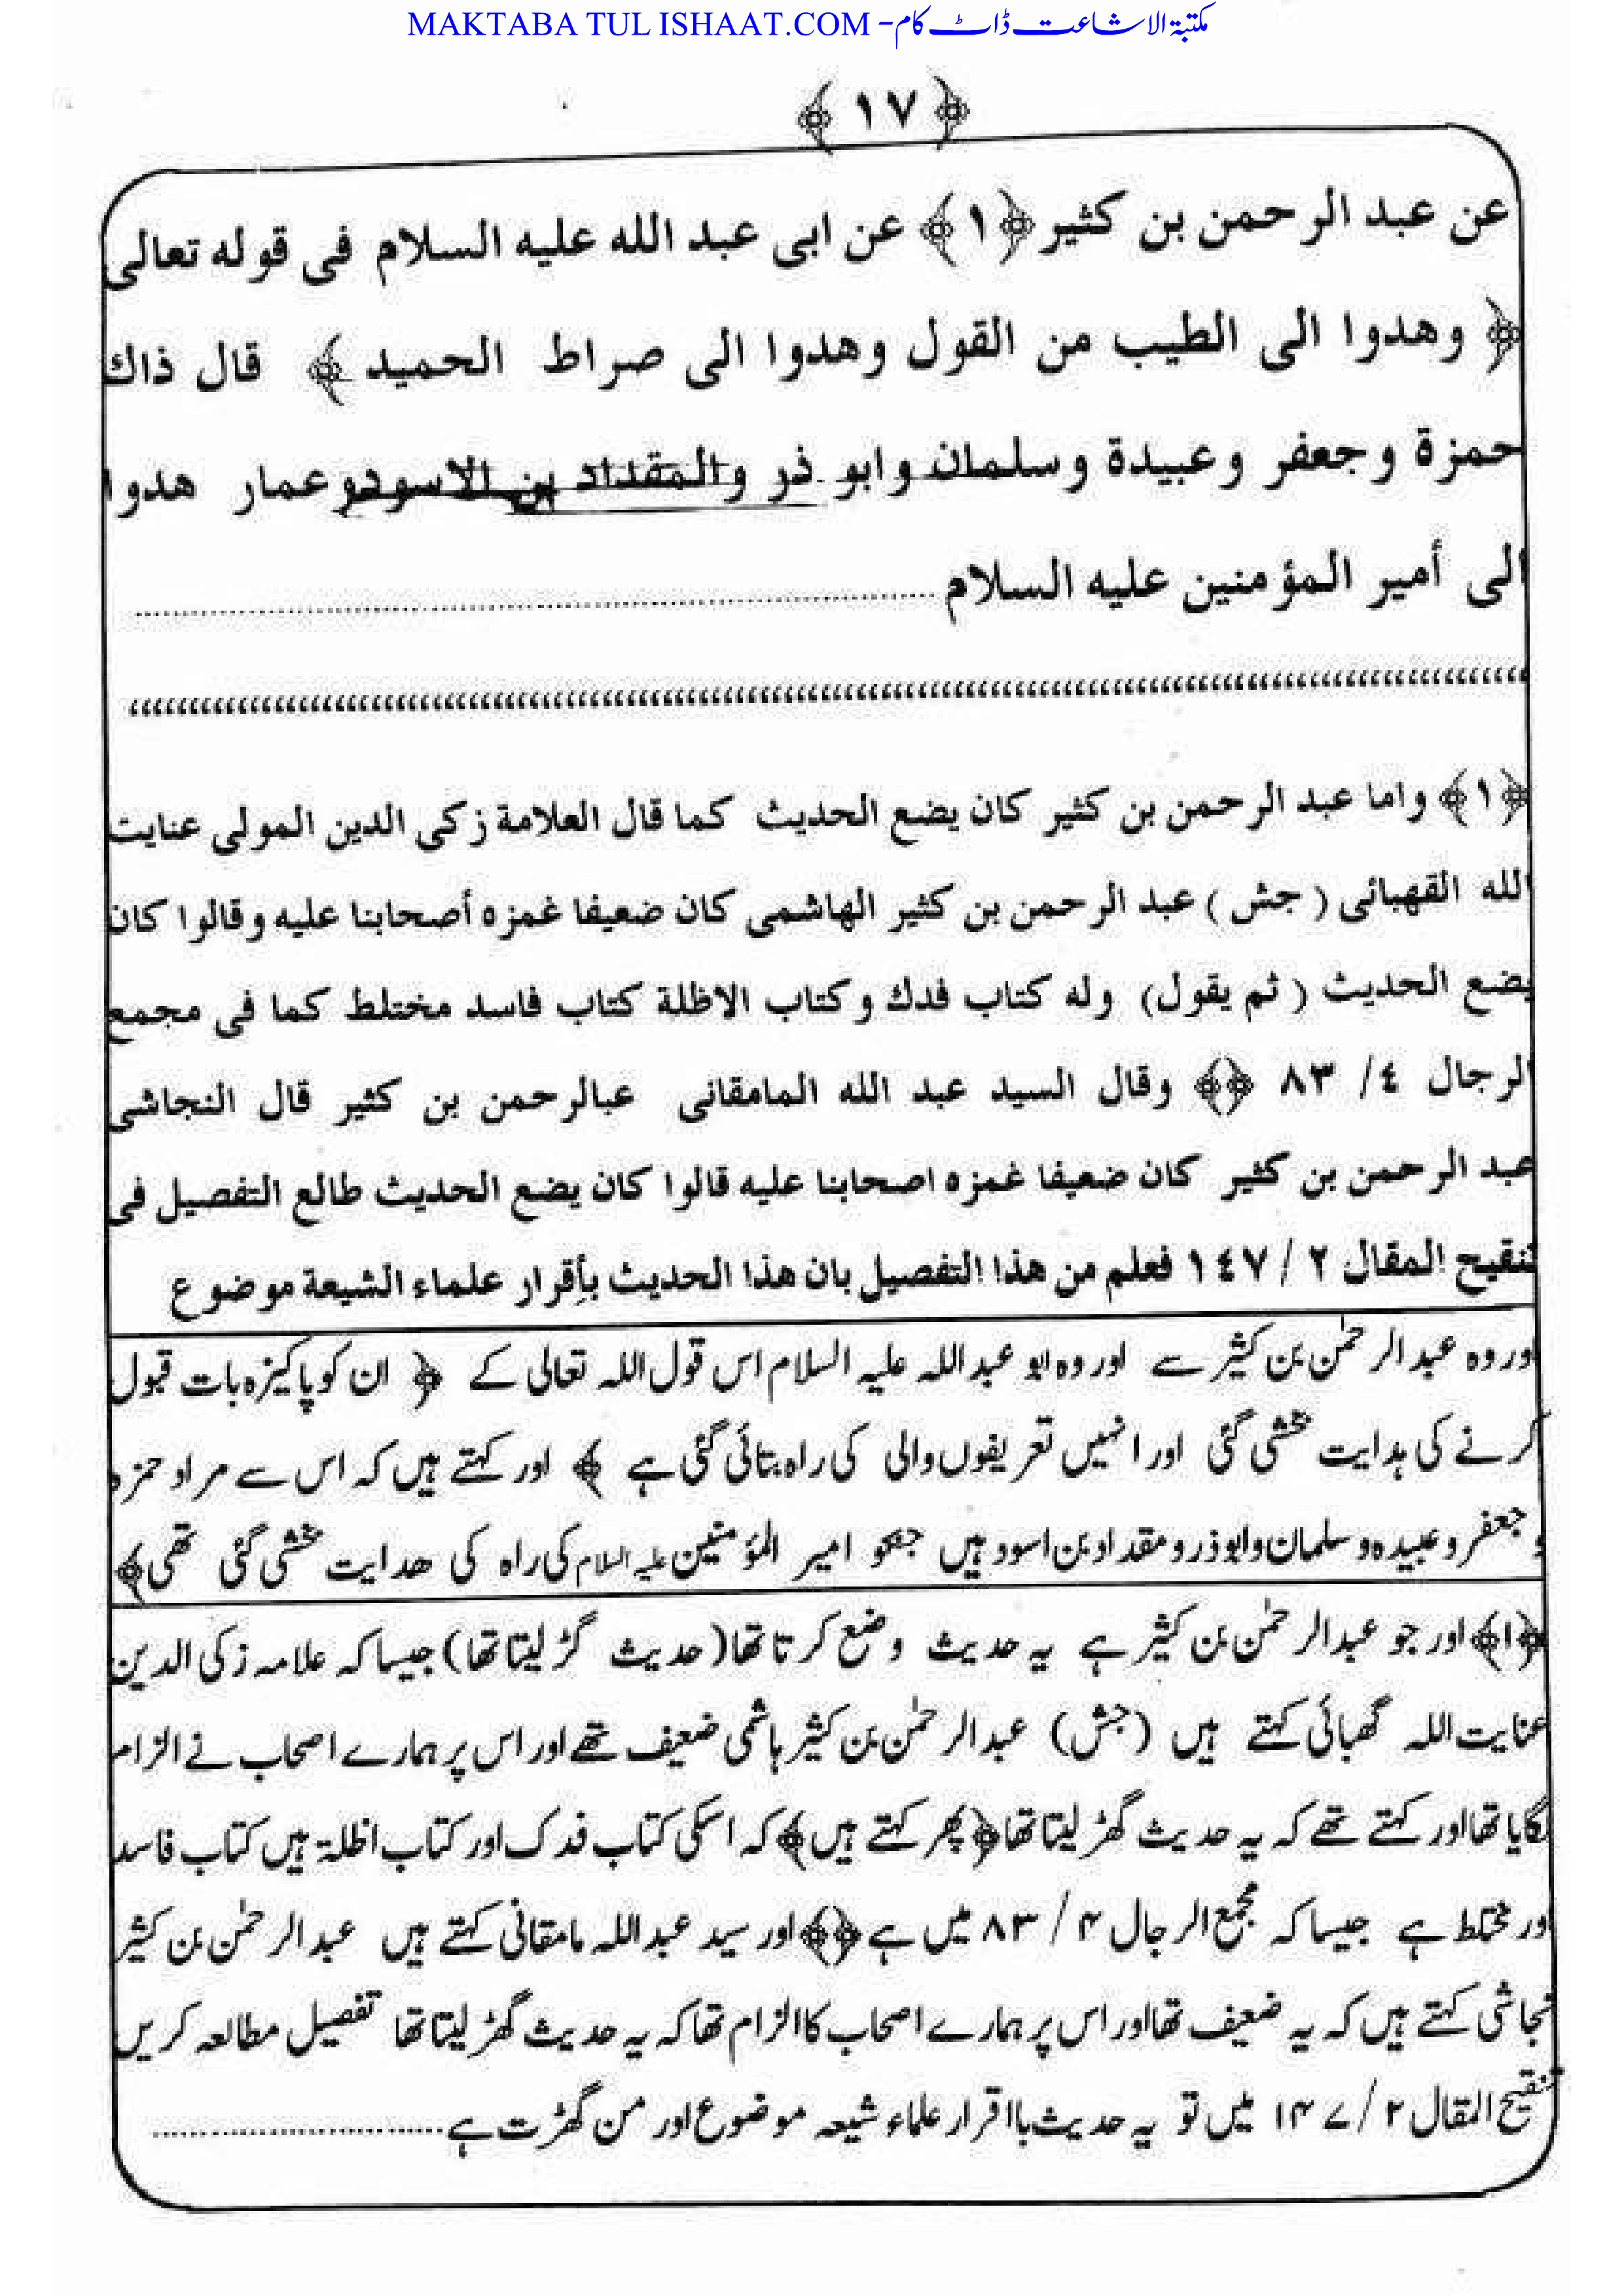 MAKTABA TUL ISHAAT.COM - مکتبۃ الاشاعت ڈاٹ کام
﴿ ١٧ ﴾
عن عبد الرحمن بن كثير ﴿١﴾ عن ابى عبد الله عليه السلام فى قوله تعالى
﴿ وهدوا الى الطيب من القول وهدوا الى صراط الحميد ﴾ قال ذاك
حمزة وجعفر وعبيدة وسلمان وابو ذر والمقداد بن الاسود وعمار هدوا
الى أمير المؤمنين عليه السلام ........................
﴿١﴾ واما عبد الرحمن بن كثير كان يضع الحديث كما قال العلامة زكى الدين المولى عنايت
الله القهبائى (جش) عبد الرحمن بن كثير الهاشمى كان ضعيفا غمزه أصحابنا عليه وقالوا كان
يضع الحديث (ثم يقول) وله كتاب فدك وكتاب الاظلة كتاب فاسد مختلط كما فى مجمع
الرجال ٤/ ٨٣ ﴿﴾ وقال السيد عبد الله المامقانى عبالرحمن بن كثير قال النجاشى
عبد الرحمن بن كثير كان ضعيفا غمزه اصحابنا عليه قالوا كان يضع الحديث طالع التفصيل فى
تنقيح المقال ٢ / ١٤٧ فعلم من هذا التفصيل بان هذا الحديث بأقرار علماء الشيعة موضوع
اور وہ عبد الرحمٰن بن کثیر سے اور وہ ابو عبد اللہ علیہ السلام اس قول اللہ تعالی کے ﴿ ان کو پاکیزہ بات قبول
کرنے کی ہدایت بخشی گئی اور انہیں تعریفوں والی کی راہ بتائی گئی ہے ﴾ اور کہتے ہیں کہ اس سے مراد حمزہ
و جعفر و عبیدہ و سلمان و ابوذر و مقداد بن اسود ہیں جنکو امیر المؤمنین علیہ السلام کی راہ کی ھدایت بخشی گئی تھی﴾
﴿۱﴾ اور جو عبد الرحمٰن بن کثیر ہے یہ حدیث وضع کرتا تھا (حدیث گڑ لیتا تھا) جیسا کہ علامہ زکی الدین
عنایت اللہ گھبائی کہتے ہیں (جش) عبد الرحمٰن بن کثیر ہاشمی ضعیف تھے اور اس پر ہمارے اصحاب نے الزام
لگایا تھا اور کہتے تھے کہ یہ حدیث گھڑ لیتا تھا ﴿پھر کہتے ہیں﴾ کہ اسکی کتاب فدک اور کتاب اظلۃ ہیں کتاب فاسد
اور مختلط ہے جیسا کہ مجمع الرجال ۴ / ۸۳ میں ہے ﴿﴾ اور سید عبد اللہ مامقانی کہتے ہیں عبد الرحمٰن بن کثیر
نجاشی کہتے ہیں کہ یہ ضعیف تھا اور اس پر ہمارے اصحاب کا الزام تھا کہ یہ حدیث گھڑ لیتا تھا تفصیل مطالعہ کریں
تنقیح المقال ۲ / ۱۴۷ میں تو یہ حدیث با اقرار علماء شیعہ موضوع اور من گھڑت ہے ........................